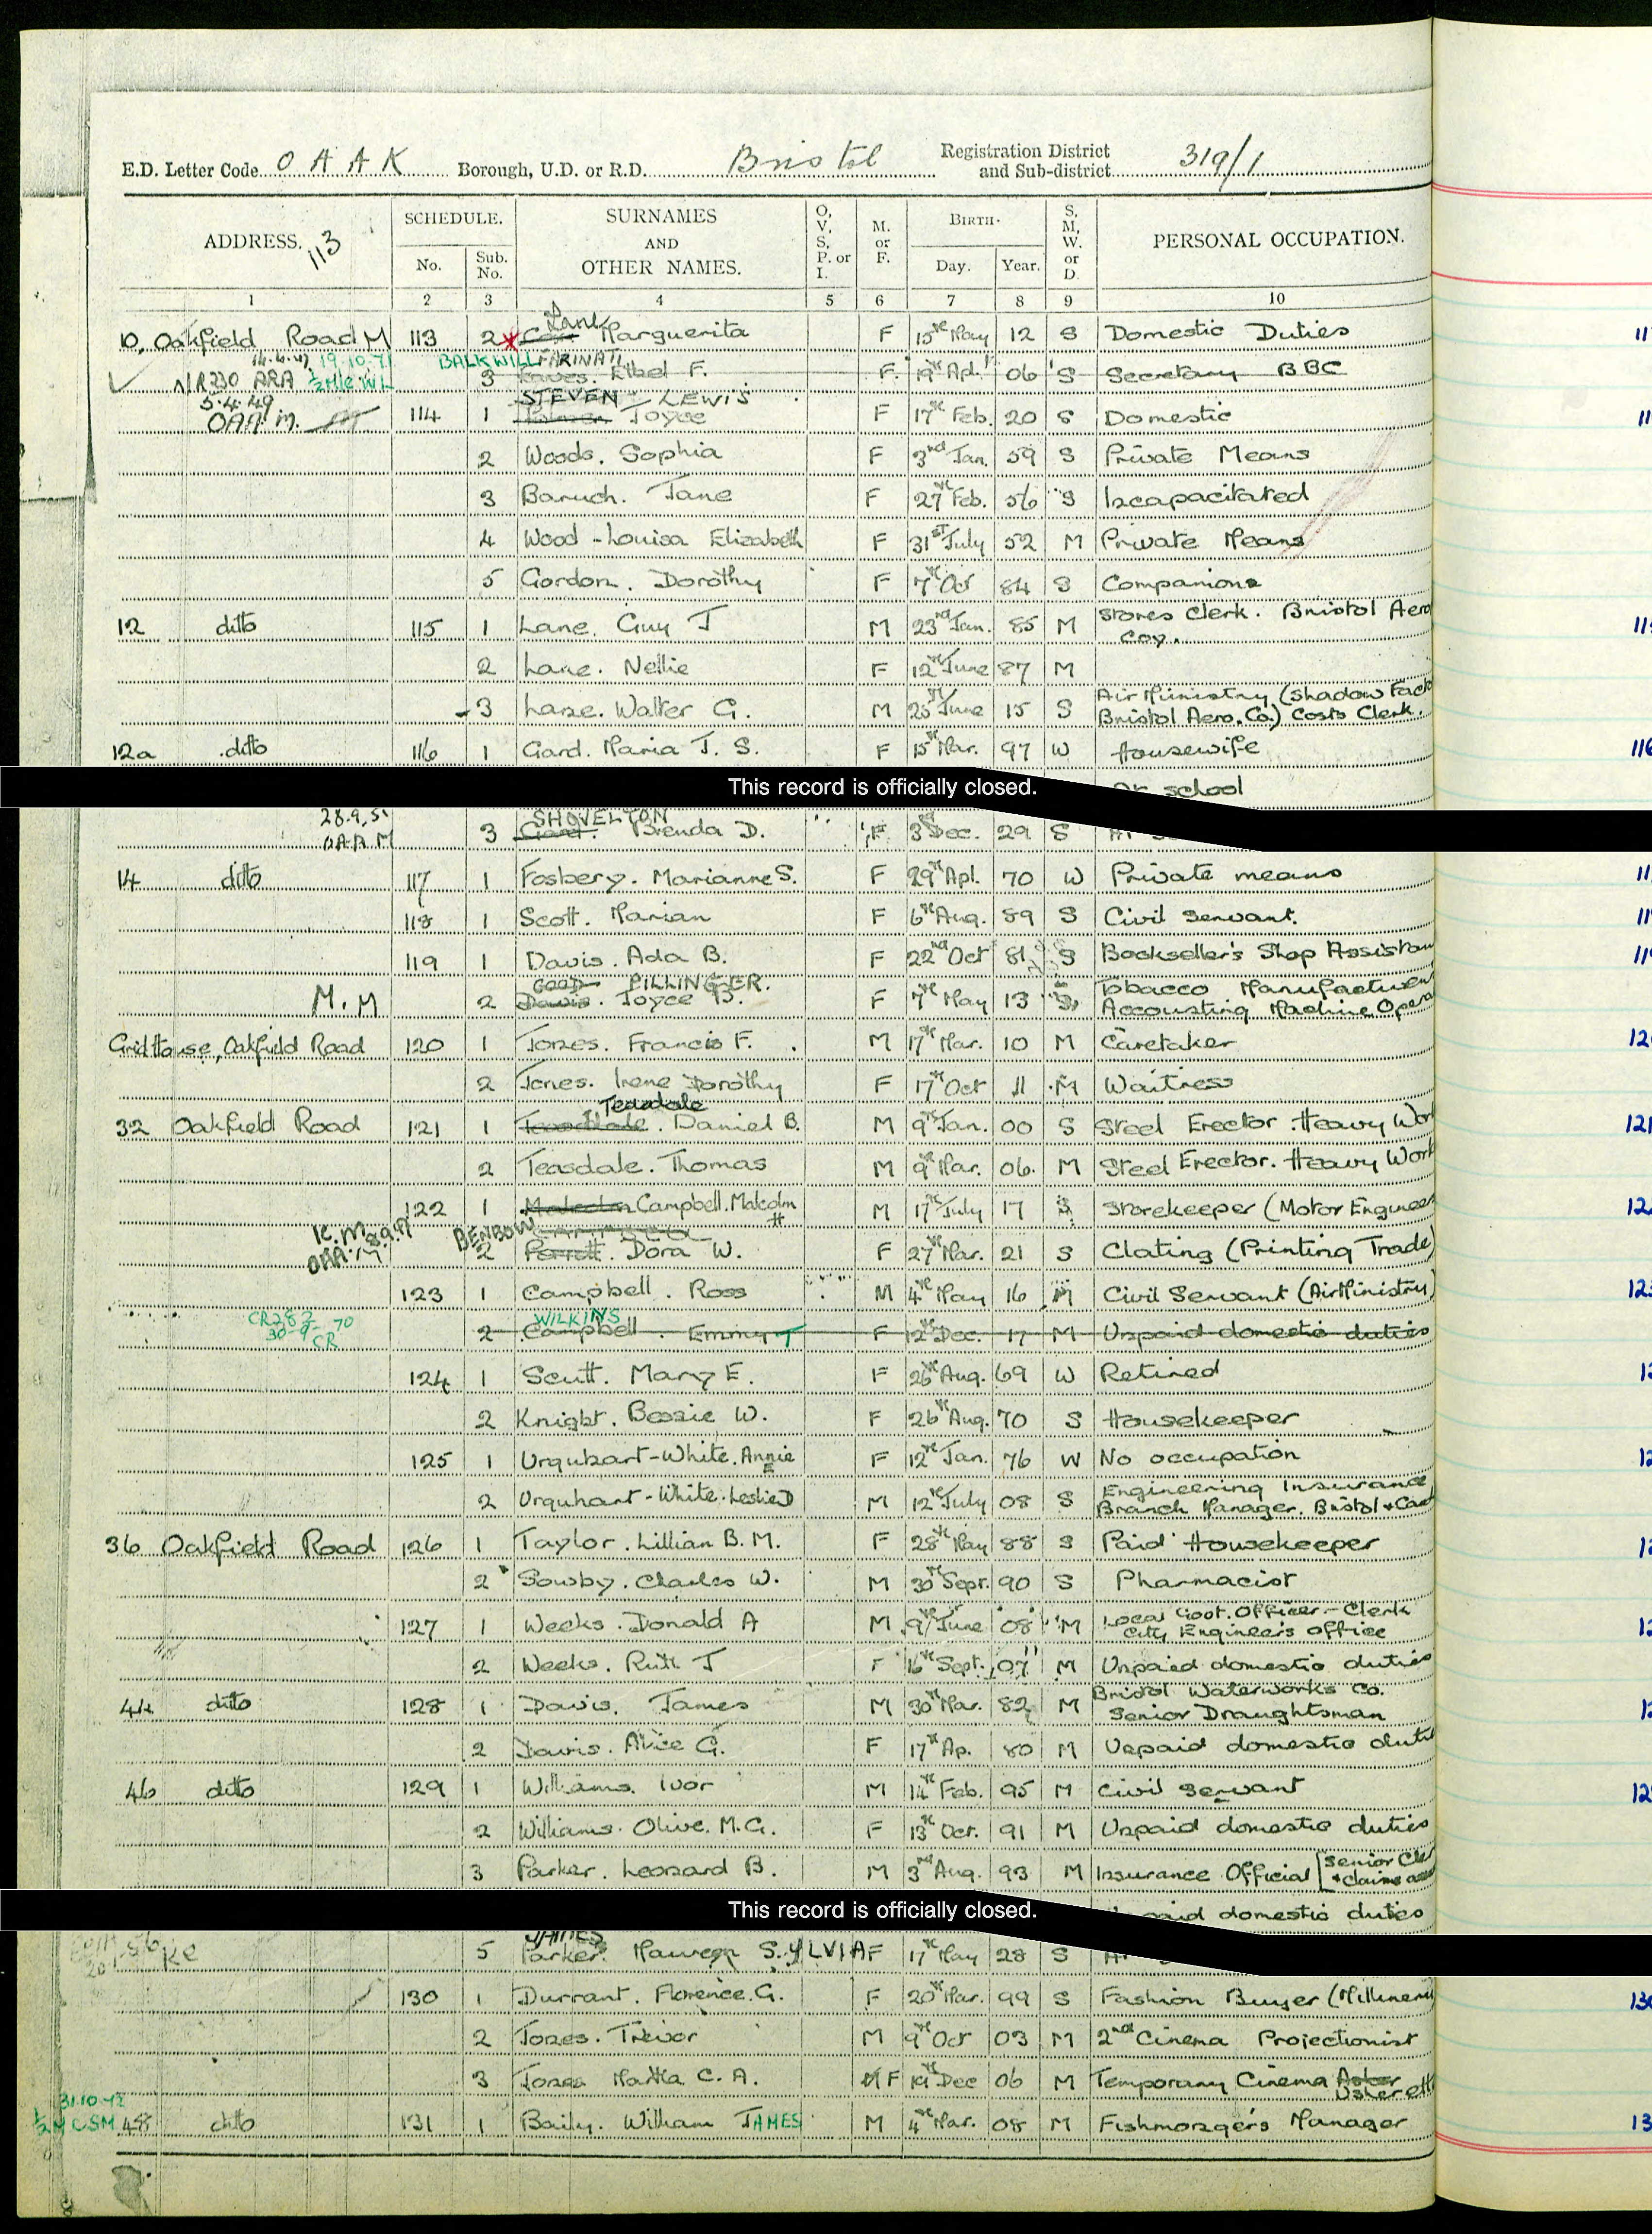 E.D. Letter Code O A A K Borough, U.D. or R.D. Bristol Registration District and Sub-district 319/1
ADDRESS. 113 SCHEDULE. No. Sub. No. SURNAMES AND OTHER NAMES. O, V, S, P. or I. M. or F. BIRTH- Day. Year. S, M, W. or D. PERSONAL OCCUPATION.
1 2 3 4 5 6 7 8 9 10
Lane
10, Oakfield Road M 113 2 Marguerita F 15th May 12 S Domestic Duties
19.10.71 BALKWILL FARINATI
R230 ARA 3 Ethel F. F. 19th Apl. 06 S Secretary BBC
5.4.49 STEVEN LEWIS
OAA M. 114 1 Joyce F 17th Feb. 20 S Domestic
2 Woods. Sophia F 3rd Jan. 59 S Private Means
3 Baruch. Jane F 27th Feb. 56 S Incapacitated
4 Wood - Louisa Elizabeth F 31st July 52 M Private Means
5 Gordon. Dorothy F 7th Oct 84 S Companion
12 ditto 115 1 Lane. Guy J M 23rd Jan. 85 M Stores Clerk. Bristol Aero Coy.
2 Lane. Nellie F 12th June 87 M
3 Lane. Walter G. M 25th June 15 S Air Ministry (Shadow Fact
Bristol Aero. Co.) Costs Clerk.
12a ditto 116 1 Gard. Maria J. S. F 15th Mar. 97 W Housewife
This record is officially closed. school
28.9.51 SHOVELTON
OAA M 3 Gard. Brenda D. F 3rd Dec. 29 S
14 ditto 117 1 Fosbery. Marianne S. F 29th Apl. 70 W Private means
118 1 Scott. Marian F 6th Aug. 89 S Civil Servant.
119 1 Davis. Ada B. F 22nd Oct 81 S Bookseller's Shop Assistan
GOOD PILLINGER.
M. M 2 Davis. Joyce B. F 7th May 13 S Tobacco Manufacturer
Accounting Machine Opera
Grid House, Oakfield Road 120 1 Jones. Francis F. M 17th Mar. 10 M Caretaker
2 Jones. Irene Dorothy F 17th Oct 11 M Waitress
Teasdale
32 Oakfield Road 121 1 Daniel B. M 9th Jan. 00 S Steel Erector Heavy Wor
2 Teasdale. Thomas M 9th Mar. 06 M Steel Erector. Heavy Work
122 1 Malcolm Campbell. Malcolm H M 17th July 17 S Storekeeper (Motor Engineer
BENBOW CAMPBELL
OAA M 2 Perrott. Dora W. F 27th Mar. 21 S Clating (Printing Trade)
123 1 Campbell. Ross M 4th May 16 M Civil Servant (Air Ministry)
CR283 WILKINS
30-9-70 CR 2 Campbell. Emmy T F 12th Dec. 17 M Unpaid domestic duties
124 1 Scutt. Mary E. F 26th Aug. 69 W Retired
2 Knight. Bessie W. F 26th Aug. 70 S Housekeeper
125 1 Urquhart-White. Annie E F 12th Jan. 76 W No occupation
2 Urquhart-White. Leslie D M 12th July 08 S Engineering Insurance
Branch Manager. Bristol + Card
36 Oakfield Road 126 1 Taylor. Lillian B. M. F 28th May 88 S Paid Housekeeper
2 Sowby. Charles W. M 30th Sept. 90 S Pharmacist
127 1 Weeks. Donald A M 9th June 08 M Local Govt. Officer - Clerk
City Engineers Office
2 Weeks. Ruth J F 16th Sept. 07 M Unpaid domestic duties
44 ditto 128 1 Davis. James M 30th Mar. 82 M Bristol Waterworks Co.
Senior Draughtsman
2 Davis. Alice G. F 17th Ap. 80 M Unpaid domestic dutie
46 ditto 129 1 Williams. Ivor M 14th Feb. 95 M Civil Servant
2 Williams. Olive. M. G. F 13th Oct. 91 M Unpaid domestic duties
3 Parker. Leonard B. M 3rd Aug. 93 M Insurance Official [Senior Cler
+ claims ass
This record is officially closed. paid domestic duties
JAMES
5 Parker. Maureen SYLVIA F 17th May 28 S
130 1 Durrant. Florence. G. F 20th Mar. 99 S Fashion Buyer (Millinery
2 Jones. Trevor M 9th Oct 03 M 2nd Cinema Projectionist
3 Jones Martha C. A. M F 19th Dec 06 M Temporary Cinema Usherette
31.10.42
48 ditto 131 1 Baily. William JAMES M 4th Mar. 08 M Fishmonger's Manager